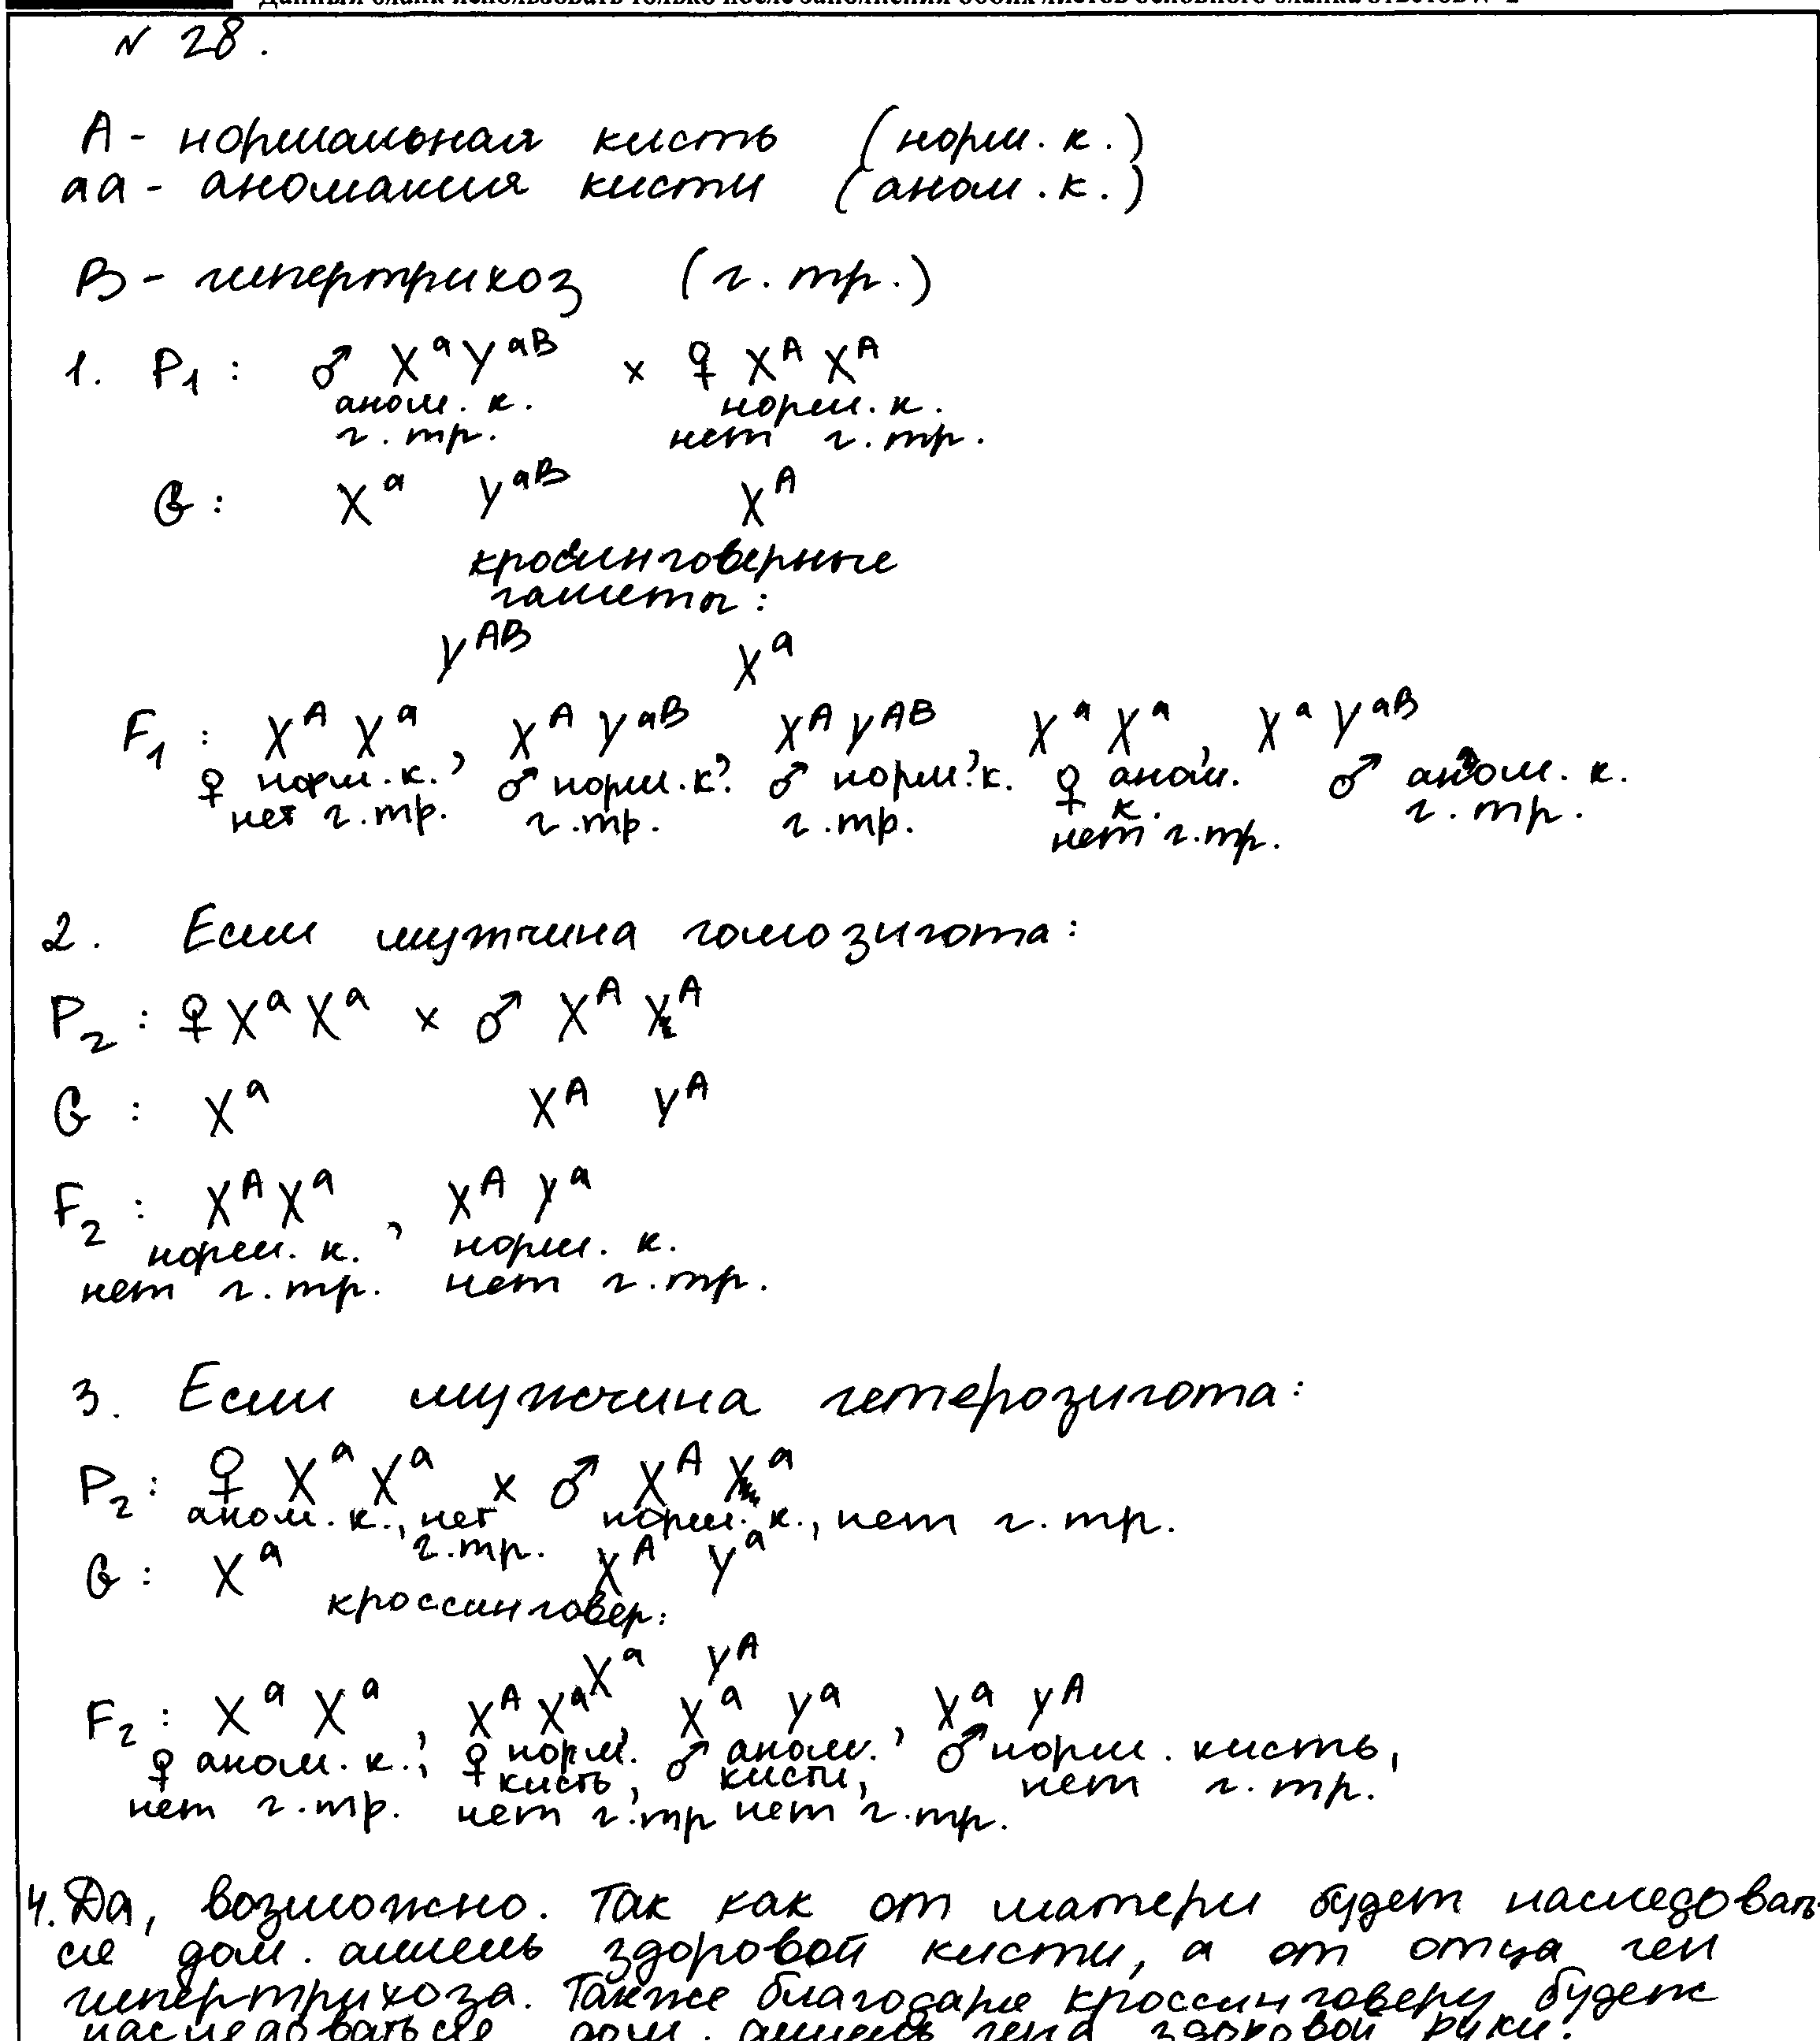 Данный бланк использовать только после заполнения обоих листов основного бланка ответов № 2
N 28.
A - нормальная кисть (норм. к.)
аа - аномалия кисти (аном. к.)
B - гипертрихоз (г. тр.)
1. P₁ : ♂ XᵃYᵃᴮ × ♀ XᴬXᴬ
аном. к. норм. к.
г. тр. нет г. тр.
G : Xᵃ Yᵃᴮ Xᴬ
кроссинговерные
гаметы :
Yᴬᴮ Xᵃ
F₁ : XᴬXᵃ, XᴬYᵃᴮ, XᴬYᴬᴮ, XᵃXᵃ, XᵃYᵃᴮ
♀ норм. к. ♂ норм. к. ♂ норм. к. ♀ аном. к. ♂ аном. к.
нет г. тр. г. тр. г. тр. нет г. тр. г. тр.
2. Если мужчина гомозигота:
P₂ : ♀ XᵃXᵃ × ♂ XᴬYᴬ
G : Xᵃ Xᴬ Yᴬ
F₂ : XᴬXᵃ, XᴬYᵃ
норм. к. норм. к.
нет г. тр. нет г. тр.
3. Если мужчина гетерозигота:
P₂ : ♀ XᵃXᵃ × ♂ XᴬYᵃ
аном. к., нет г. тр. норм. к., нет г. тр.
G : Xᵃ Xᴬ Yᵃ
кроссинговер:
Xᵃ Yᴬ
F₂ : XᵃXᵃ, XᴬXᵃ, XᵃYᵃ, XᵃYᴬ
♀ аном. к., ♀ норм. кисть, ♂ аном. кисти, ♂ норм. кисть,
нет г. тр. нет г. тр нет г. тр. нет г. тр.
4. Да, возможно. Так как от матери будет наследовать-
ся дом. аллель здоровой кисти, а от отца ген
гипертрихоза. Также благодаря кроссинговеру будет
наследоваться дом. аллель гена здоровой руки.